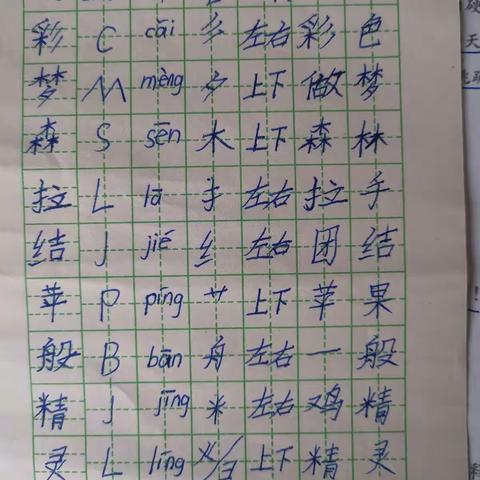 彩 C cǎi 彡 左右 彩色
梦 M mèng 夕 上下 做梦
森 S sēn 木 上下 森林
拉 L lā 扌 左右 拉手
结 J jié 纟 左右 团结
苹 P píng 艹 上下 苹果
般 B bān 舟 左右 一般
精 J jīng 米 左右 鸡精
灵 L líng 火/彐 上下 精灵
硬
天
!